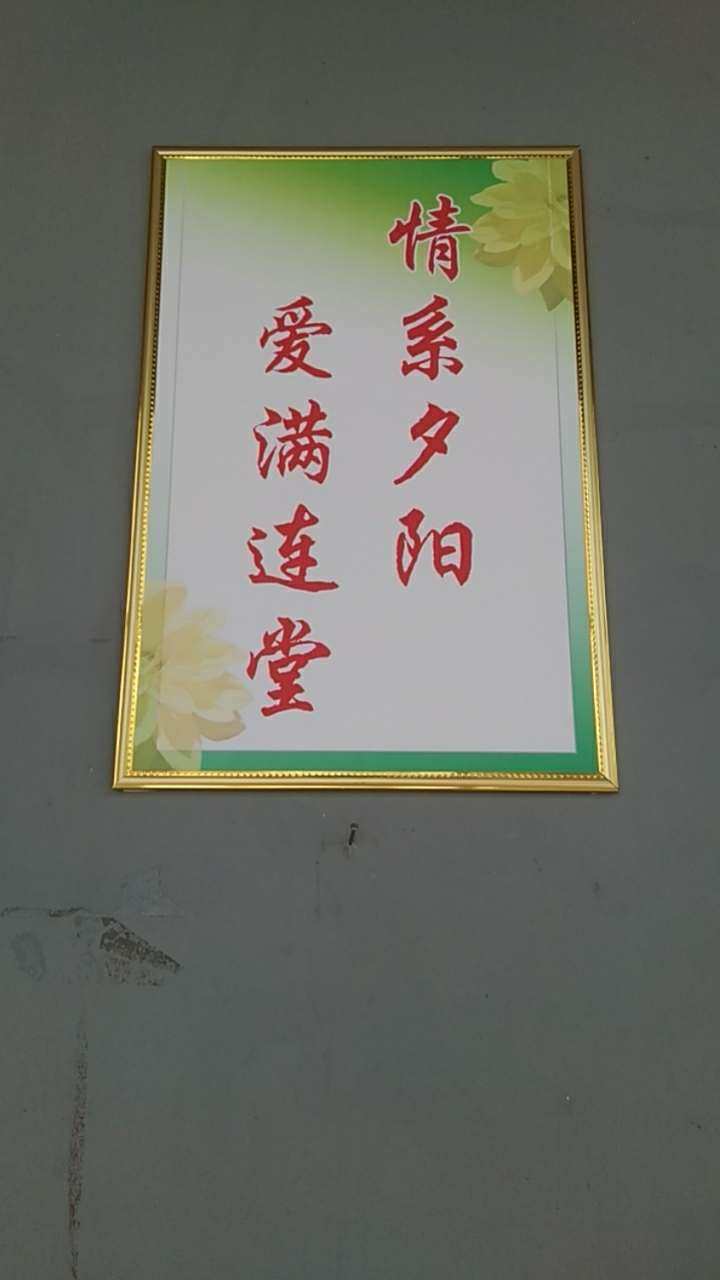 情系夕阳
爱满连堂